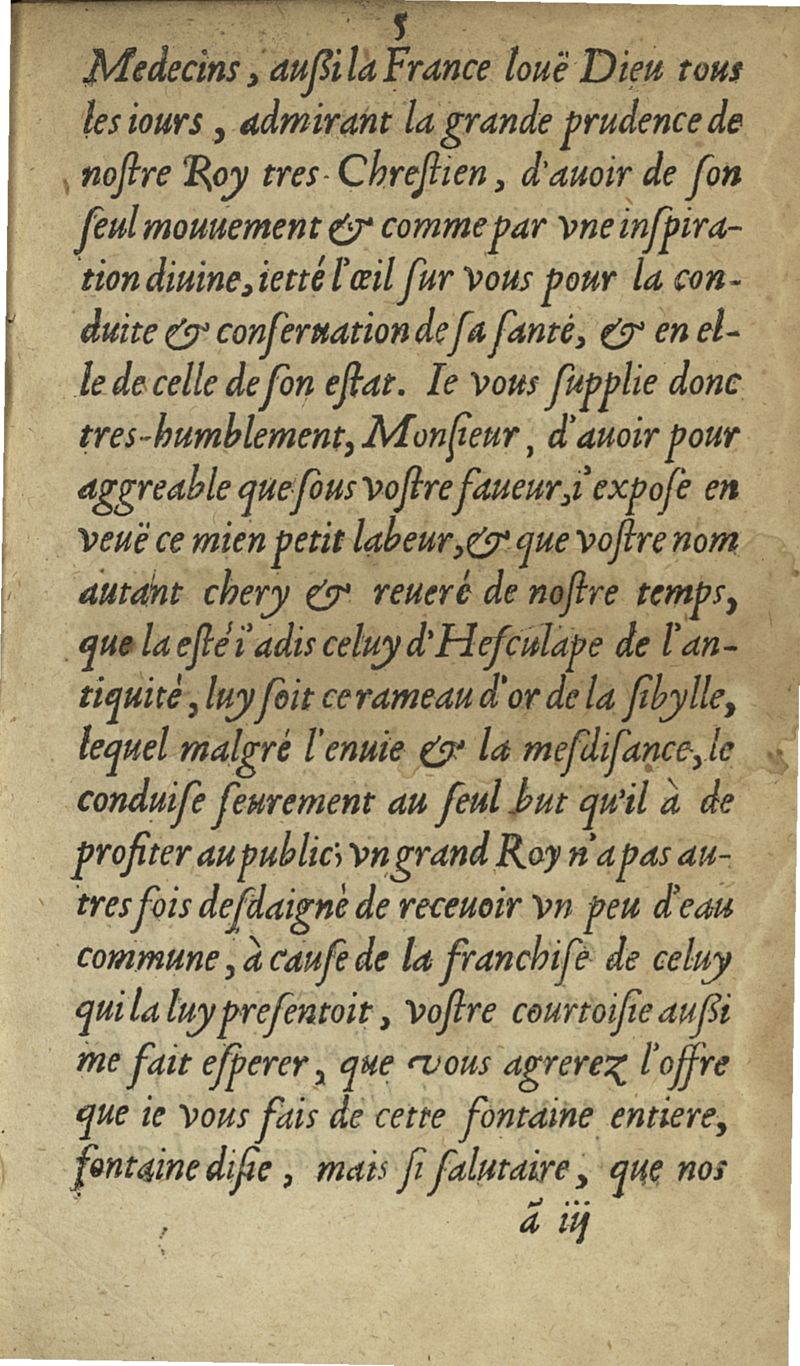 5
Medecins, außi la France louë Dieu tous
les iours, admirant la grande prudence de
noſtre Roy tres-Chreſtien, d'auoir de ſon
ſeul mouuement & comme par vne inſpira-
tion diuine, ietté l'œil ſur vous pour la con-
duite & conſeruation de ſa ſanté, & en el-
le de celle de ſon eſtat. Ie vous ſupplie donc
tres-humblement, Monſieur, d'auoir pour
aggreable que ſous voſtre faueur, i'expoſe en
veuë ce mien petit labeur, & que voſtre nom
autant chery & reueré de noſtre temps,
que la eſté i'adis celuy d'Heſculape de l'an-
tiquité, luy ſoit ce rameau d'or de la ſibylle,
lequel malgré l'enuie & la meſdiſance, le
conduiſe ſeurement au ſeul but qu'il à de
profiter au public; vn grand Roy n'a pas au-
tres fois deſdaignè de receuoir vn peu d'eau
commune, à cauſe de la franchiſe de celuy
qui la luy preſentoit, voſtre courtoiſie außi
me fait eſperer, que vous agrerez l'offre
que ie vous fais de cette fontaine entiere,
fontaine diſie, mais ſi ſalutaire, que nos
ã iij